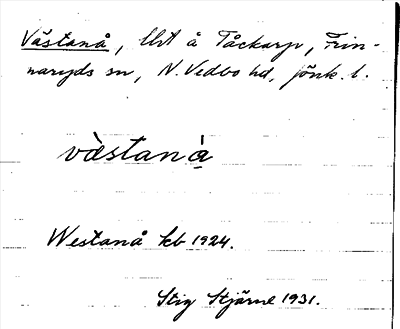 Västanå, lht å Tåckarp, Frin-
naryds sn, N. Vedbo hd, Jönk. l.
västanà̱
Westanå kb 1924.
Stig Stjärne 1931.